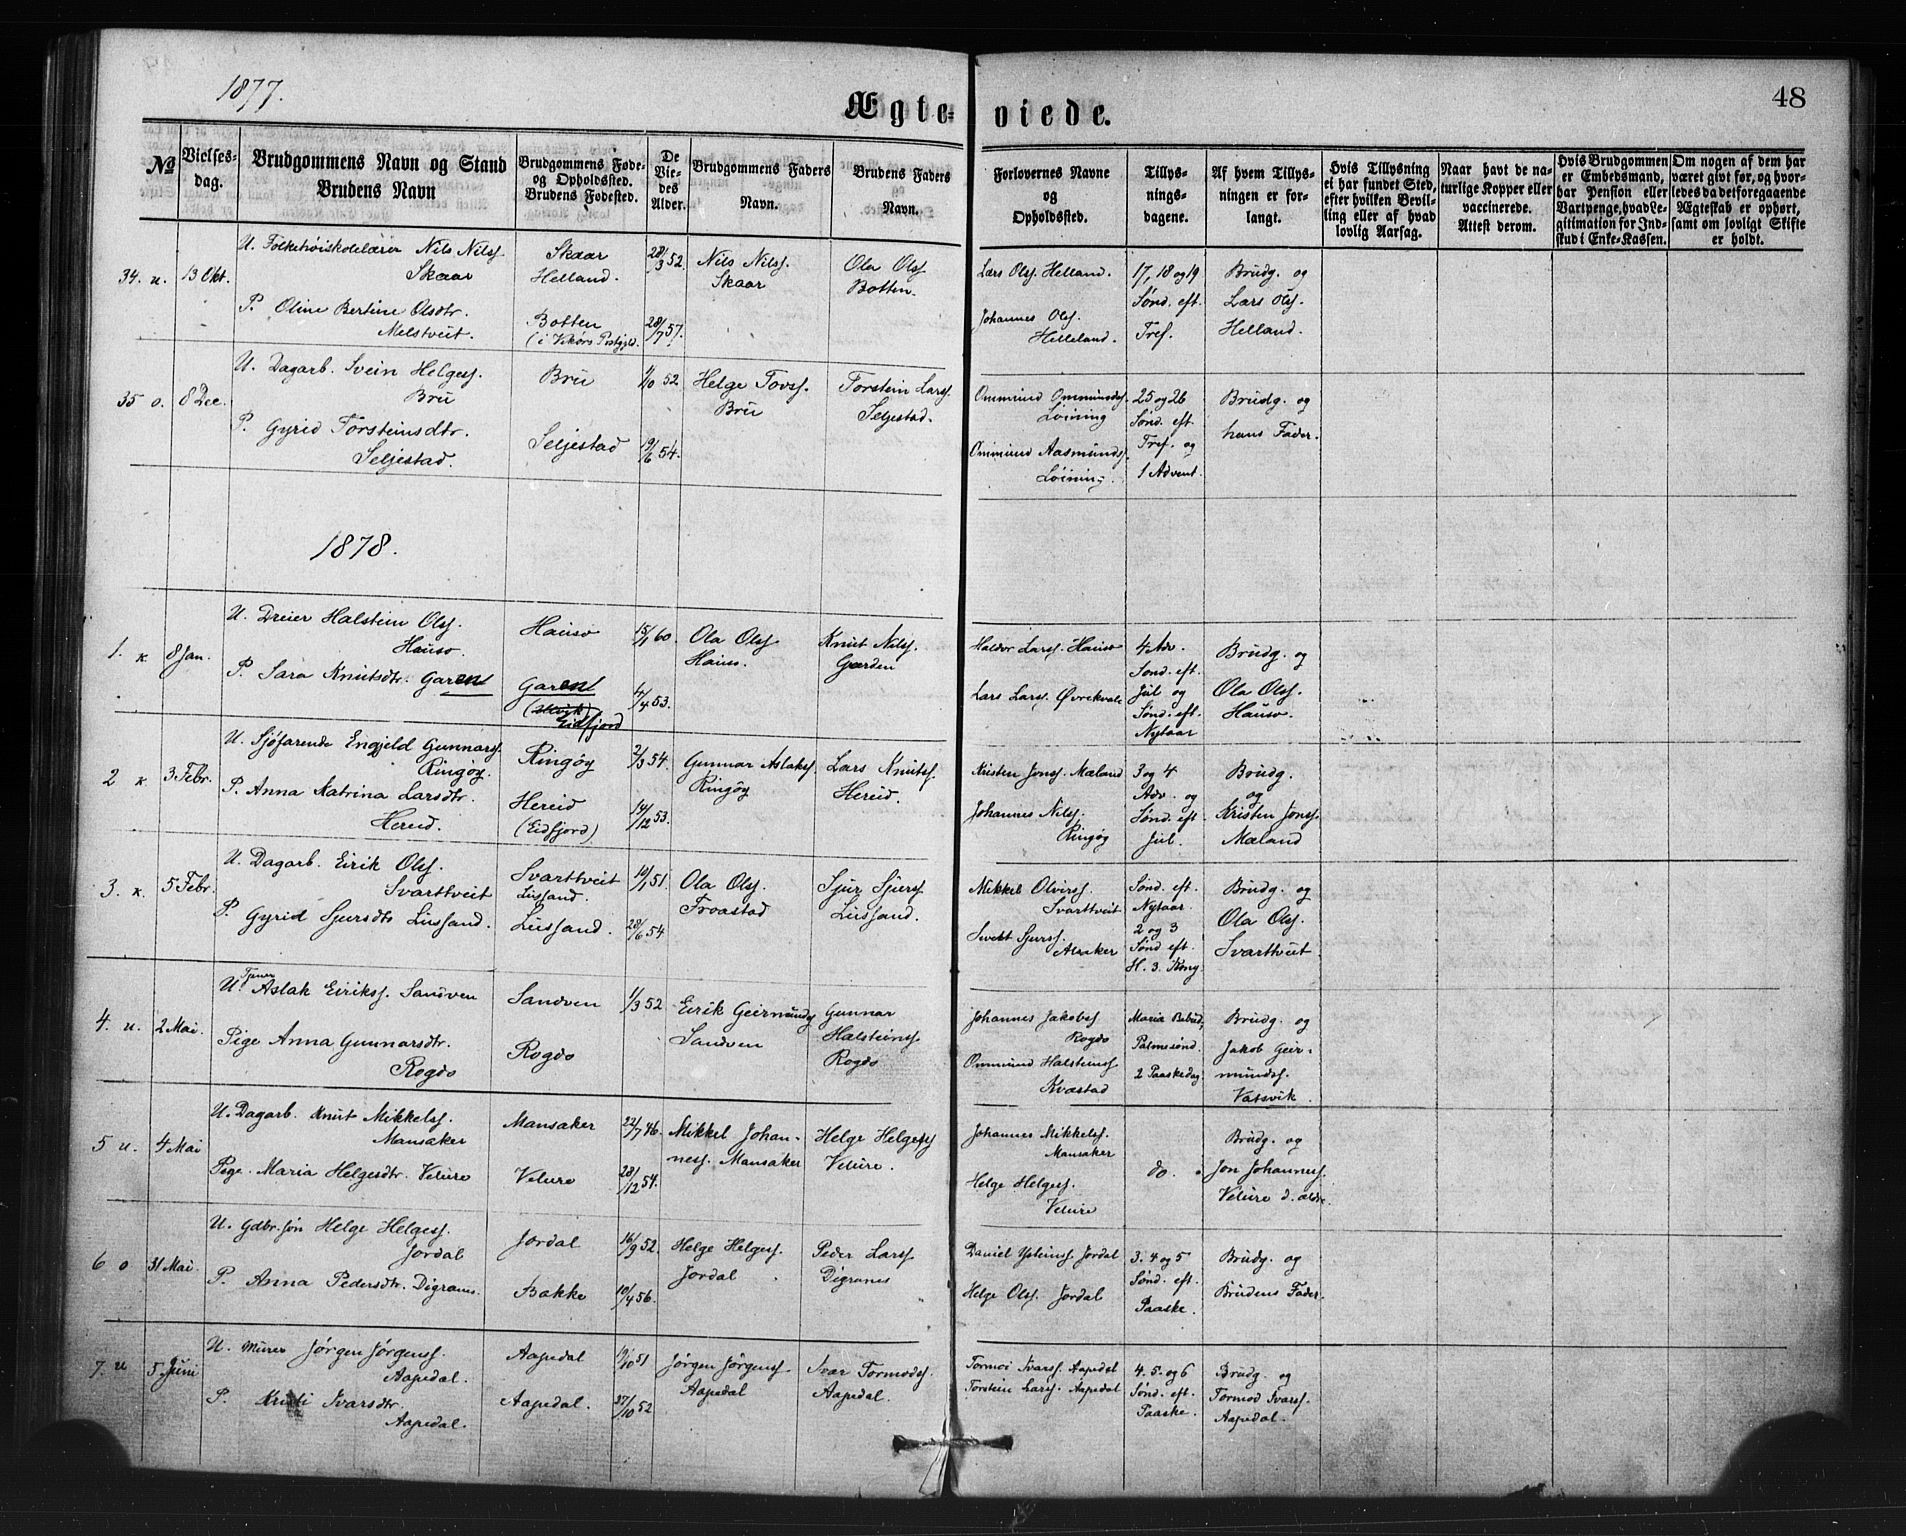 1877.
48
Ægte-viede.
No
Vielses-dag.
Brudgommens Navn og Stand
Brudens Navn
Brudgommens Føde-
og Opholdssted.
Brudens Fødested.
De
Vie-
des
Alder.
Brudgommens Faders
Navn.
Brudens Faders
og
Navn.
Forlovernes Navne
og
Opholdssted.
Tillys-
nings-
dagene.
Af hvem Tillys-
ningen er for-
langt.
Hvis Tillysning
ei har fundet Sted,
efter hvilken Bevil-
ling eller af hvad
lovlig Aarsag.
Naar havt de na-
turlige Kopper eller
vaccinerede.
Attest derom.
Hvis Brudgommen
er Embedsmand,
har Pension eller
Vartpenge, hvad Le-
gitimation for Ind-
skud i Enke-Kassen.
Om nogen af dem har
været givt før, og hvor-
ledes da det foregaaende
Ægteskab er ophørt,
samt om lovligt Skifte
er holdt.
34. u. 13 Okt.
U. Folkehøiskolelærer Nils Nilss.
Skaar
P. Oline Bertine Olsdtr.
Melstveit.
Skaar
Helland.
Botten
(i Vikørs Prstgjld.
28/3 52.
28/7 57.
Nils Nilss.
Skaar
Ola Olss.
Botten.
Lars Olss. Helland.
Johannes Olss.
Helleland.
17, 18 og 19
Sønd. eft.
Tref.
Brudg. og
Lars Olss.
Helland.
35 o. 8 Dec.
U. Dagarb. Svein Helgess.
Bru
P. Gyrid Torsteinsdtr.
Seljestad.
Bru
Seljestad
52.
19/6 54.
Helge Tovss.
Bru
Torstein Larss.
Seljestad.
Ommund Ommundss.
Løining
Ommund Aasmundss.
Løining.
25 og 26
Sønd. eft
Tref. og
1 Advent.
Brudg. og
hans Fader.
1878.
1. k. 8 Jan.
U. Dreier Halstein Olss.
Hauso.
P. Sara Knutsdtr. Garen
Hauso
Garen
(Ulvik)
Eidfjord
15/1 60.
4/4 53.
Ola Olss
Hauso.
Knut Nilss.
Garden
Haldor Larss. Hauso
Lars Larss. Øvrekvale
4 Adv.
Sond. eft.
Jul og
Sønd. eft.
Nytaar
Brudg. og
Ola Olss.
Hauso.
2 k. 3 Febr.
U. Sjøfarende Engjeld Gunnarss.
Ringøy.
P. Anna Katrina Larsdtr.
Hereid.
Ringøy
Hereid
(Eidfjord)
2/3 54.
14/12 53.
Gunnar Aslakss.
Ringøy
Lars Knutss.
Hereid.
Kristen Jonss. Mæland
Johannes Nilss.
Ringøy
3 og 4
Adv. og
Sønd. eft
Jul.
Brudg.
og
Kristen Jonss.
Mæland
3. k. 5 Febr.
U. Dagarb. Eirik Olss.
Svarttveit
P. Gyrid Sjursdtr Lussand.
Svarttveit
Lussand.
Lussand.
10/1 51.
28/6 54
Ola Olss.
Froastad
Sjur Sjurss.
Lussand.
Mikkel Olvirss.
Svarttveit
Sjurss.
Alsaker
Sønd. eft.
Nytaar.
2 og 3
Sønd eft.
H. 3. Kong.
Brudg. og
Ola Olss.
Svarttveit.
4. u. 2 Mai.
U. Aslak Eirikss. Sandven
Pige Anna Gunnarsdtr.
Rogdo
Sandven
Rogdo
1/3 52.
Eirik Geirmundss
Sandven
Gunnar
Halsteinss.
Rogdo
Johannes Jakobss
Rogdo
Ommund Halsteinss
Kvæstad
Maria Bebud.
Palmesønd.
2 Paaskedag
Brudg. og
Jakob Geir-
mundss.
Vatsvik.
5 u. 4 Mai
U. Dagarb. Knut Mikkelss.
Mansaker
Pige. Maria Helgesdtr. Velure
Mansaker
Velure
22/7 46.
28/12 54.
Mikkel Johan-
ness. Mansaker
Helge Helgess
Velure.
Johannes Mikkelss.
Mansaker
Helge Helgess.
Velure
do.
Brudg. og
Jon Johanness.
Velure d. ældr.
6 o 31 Mai.
U. Gdbr.søn Helge Helgess.
Jordal
P. Anna Pedersdtr. Digranes.
Jordal
Bakke
16/9 52.
10/4 56.
Helge Helgess.
Jordal.
Peder Larss
Digranes
Daniel Ysteinss. Jordal
Helge Olss. Jordal
3. 4 og 5
Sønd. eft.
Paaske.
Brudg. og
Brudens Fader.
7. u 5 Juni
U. Murer Jørgen Jørgenss.
Aapedal.
P. Kristi Ivarsdtr.
Aapedal.
Aapedal
Aapedal.
19/10 51
27/10 52
Jørgen Jørgenss.
Aapedal
Ivar Tormodss.
Aapedal.
Tormod Ivarss. Aapedal
Torstein Larss. Aapedal
4. 5. og 6
Sønd. eft.
Paaske.
Brudg. og
Tormod Ivarss.
Aapedal.